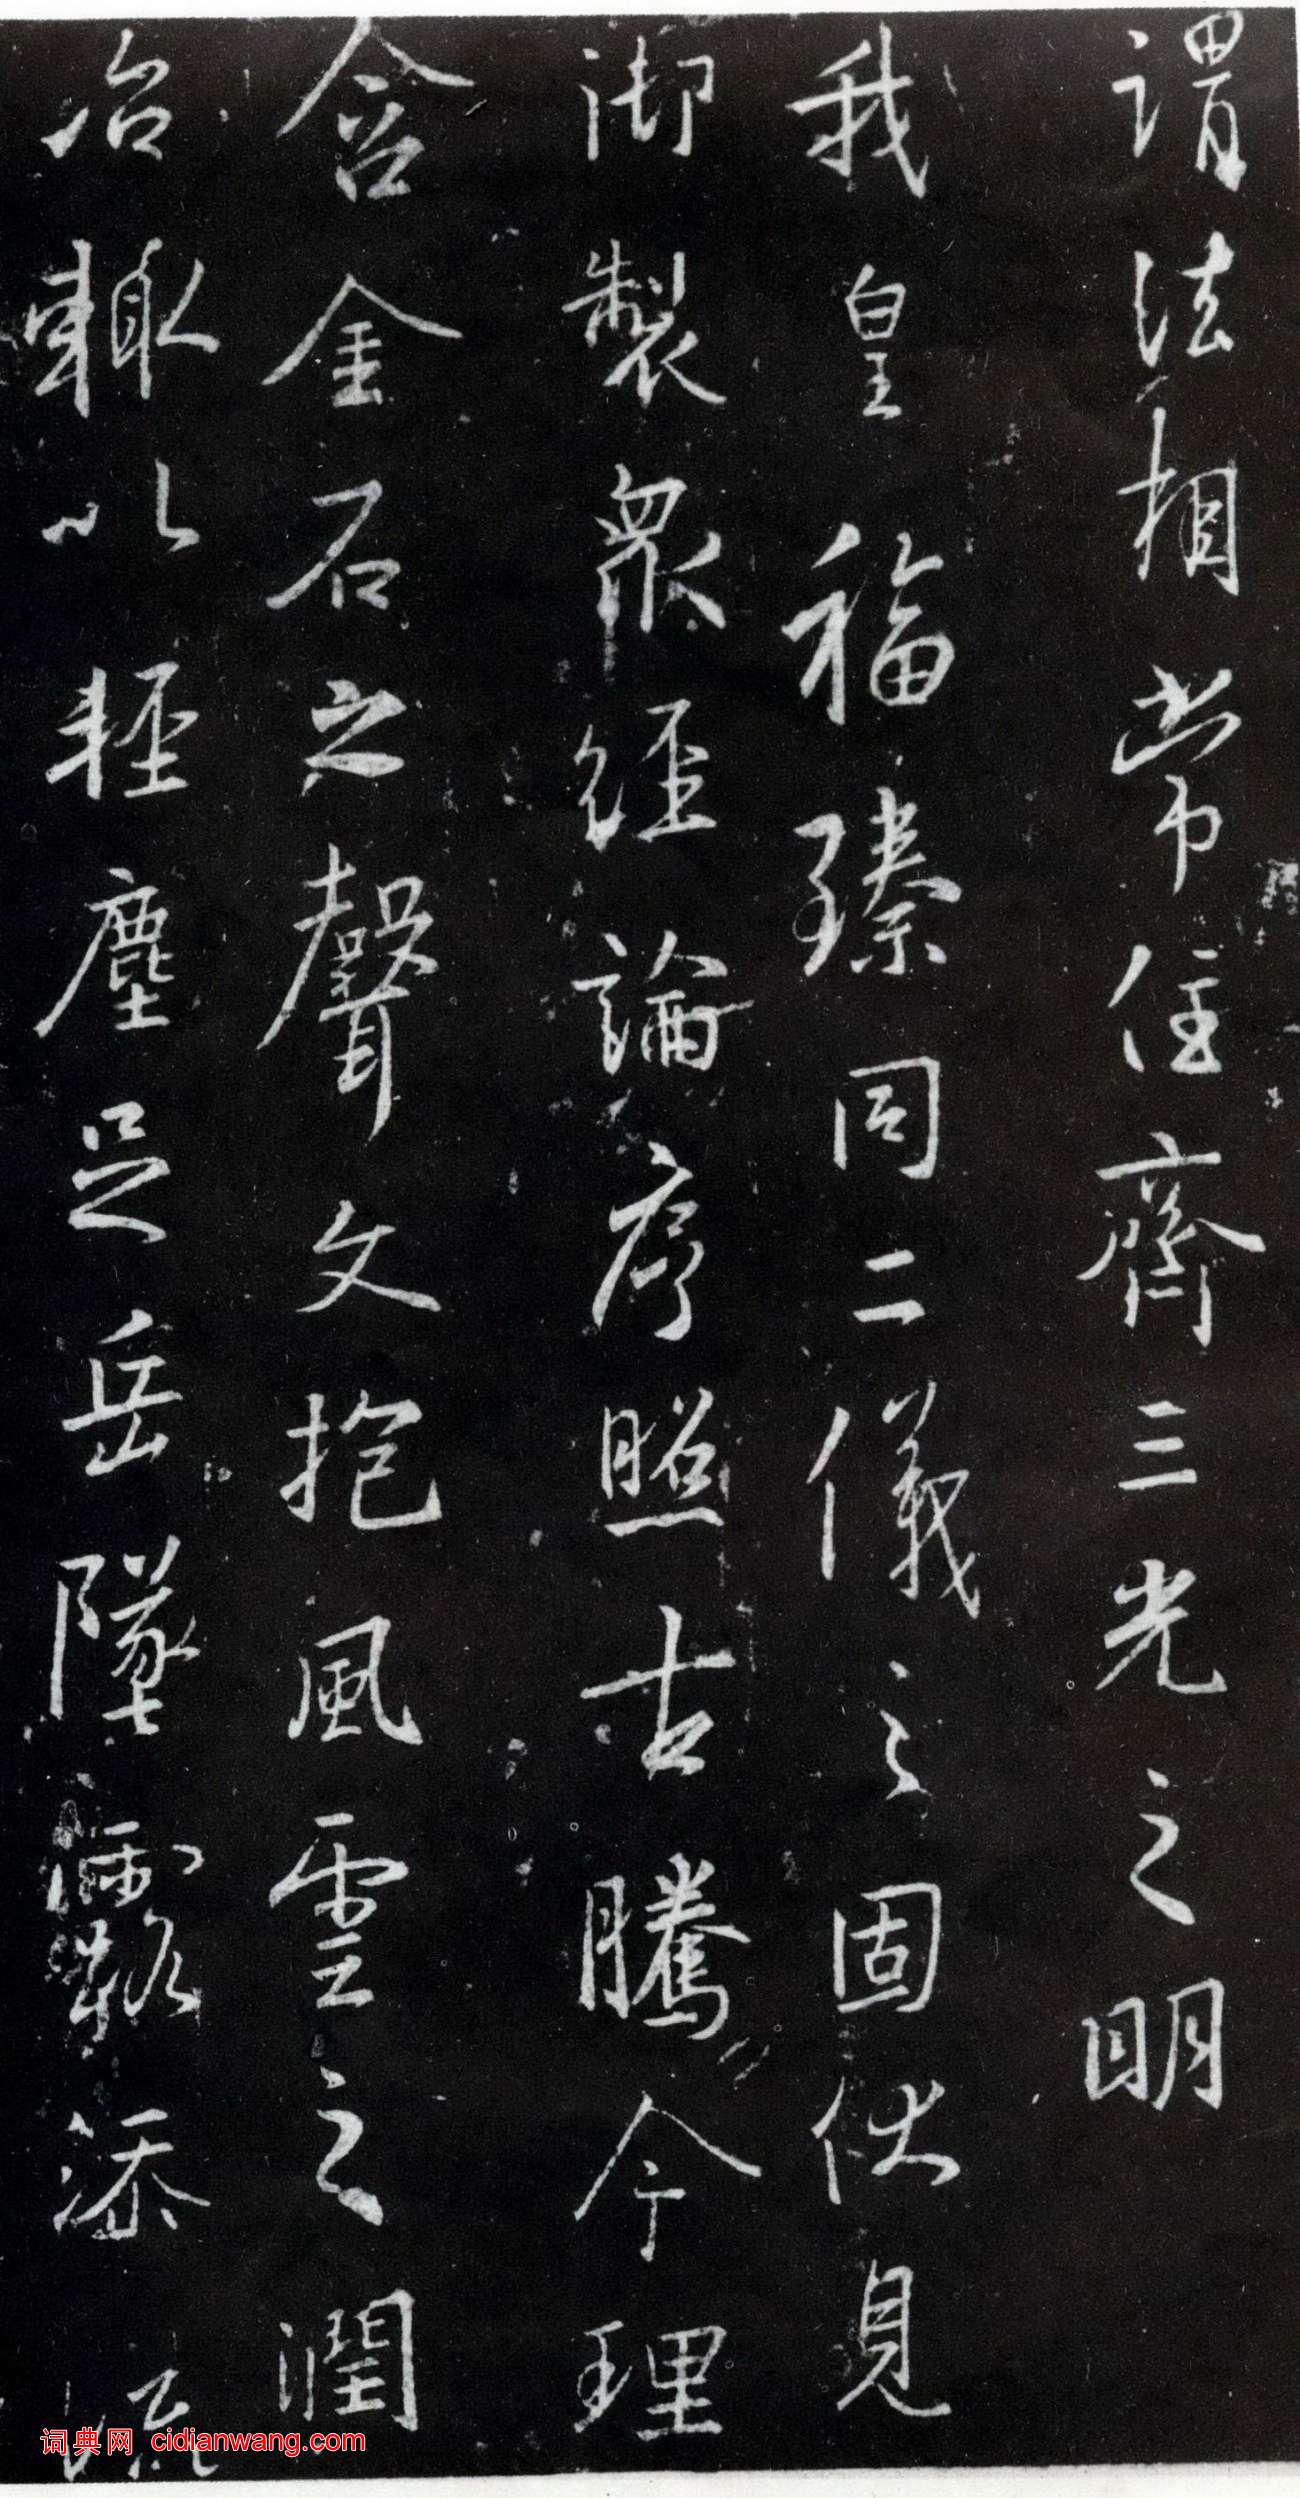 謂法相常住齊三光之明
我皇福臻同二儀之固伏見
御製眾經論序照古騰今理
含金石之聲文抱風雲之潤
治輙以輕塵足岳墜露添流
词典网 cidianwang.com